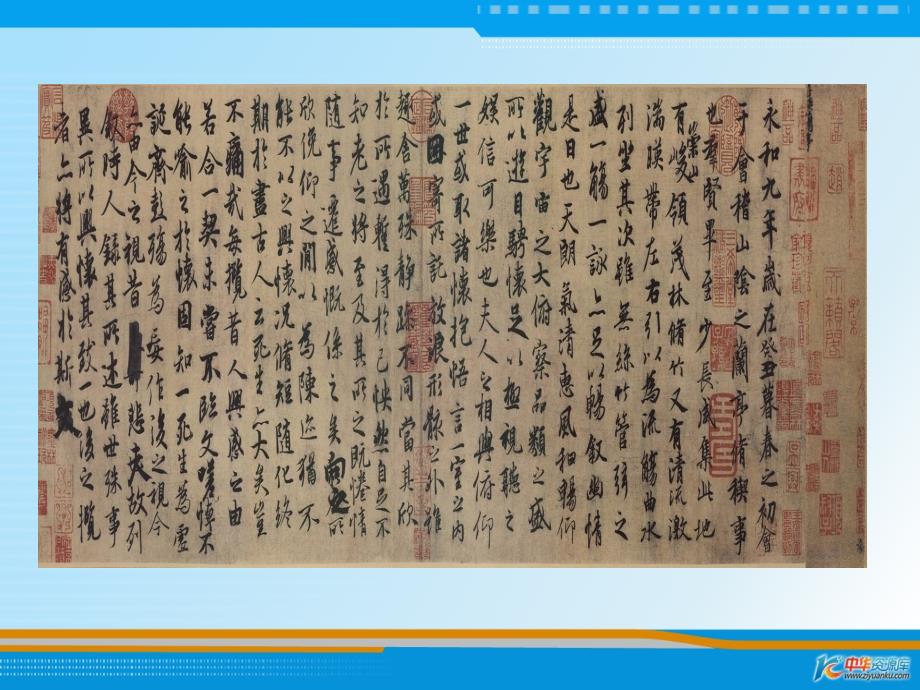 永和九年歲在癸丑暮春之初會
于會稽山陰之蘭亭脩稧事
也羣賢畢至少長咸集此地
有崇山峻領茂林脩竹又有清流激
湍暎帶左右引以為流觴曲水
列坐其次雖無絲竹管弦之
盛一觴一詠亦足以暢敘幽情
是日也天朗氣清惠風和暢仰
觀宇宙之大俯察品類之盛
所以遊目騁懷足以極視聽之
娛信可樂也夫人之相與俯仰
一世或取諸懷抱悟言一室之內
或因寄所託放浪形骸之外雖
趣舍萬殊靜躁不同當其欣
於所遇暫得於己怏然自足不
知老之將至及其所之既惓情
隨事遷感慨係之矣向之所
欣俛仰之閒以為陳迹猶不
能不以之興懷況脩短隨化終
期於盡古人云死生亦大矣豈
不痛哉每攬昔人興感之由
若合一契未嘗不臨文嗟悼不
能喻之於懷固知一死生為虛
誕齊彭殤為妄作後之視今
亦由今之視昔悲夫故列
敘時人錄其所述雖世殊事
異所以興懷其致一也後之攬
者亦將有感於斯文
中华资源库
www.ziyuanku.com